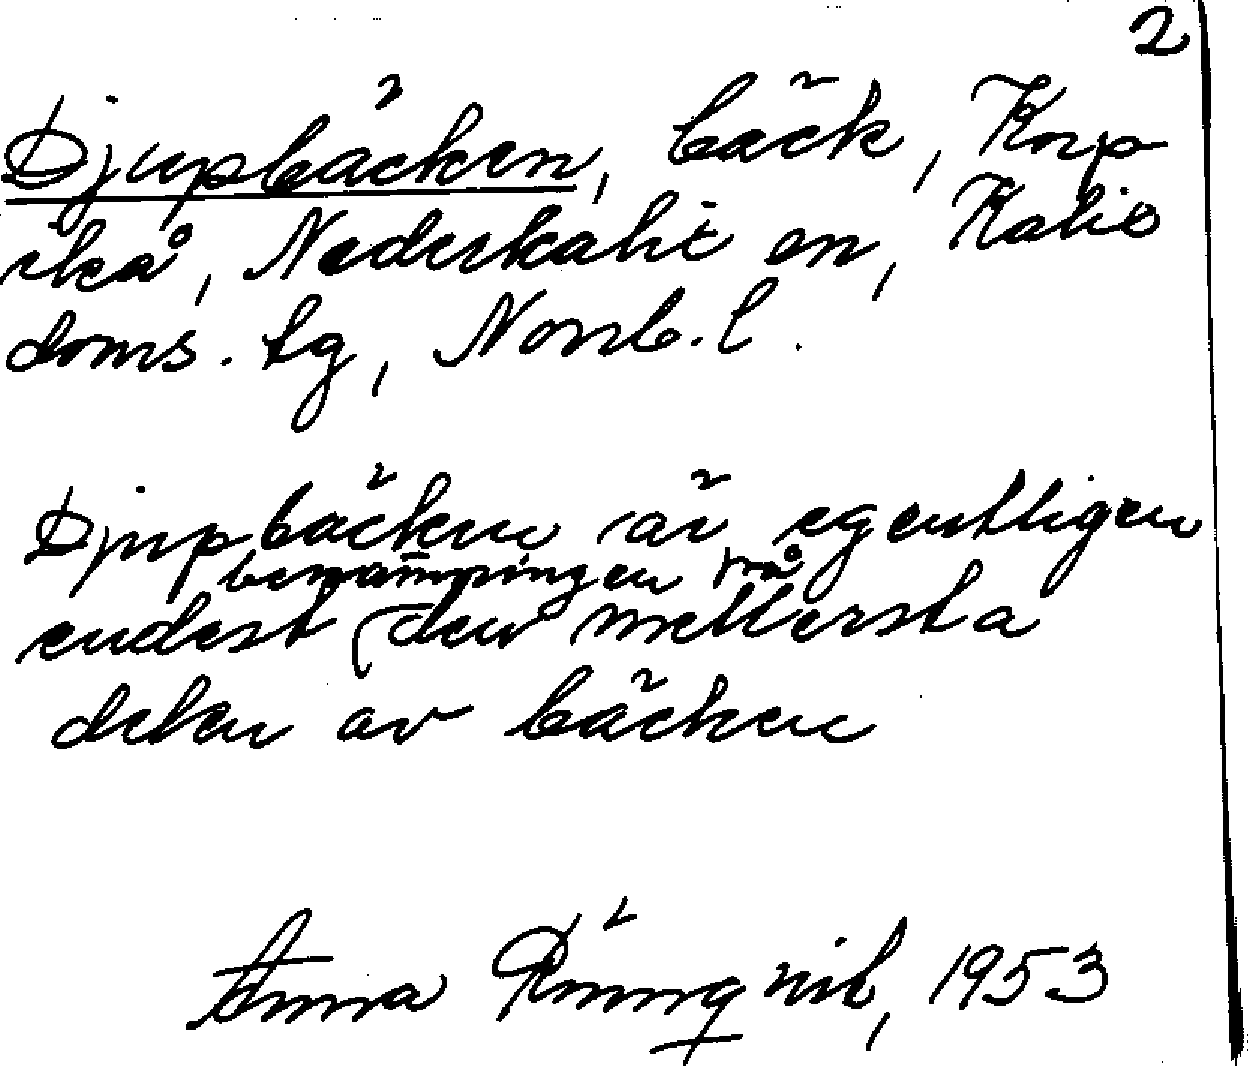 2
Djupbäcken, bäck, Korp
ikå, Nederkalix en, Kalix
doms. tg, Norrb. l.
Djupbäcken är egentligen
benämningen på
endast den mellersta
delen av bäcken
Anna Rönnqvist, 1953